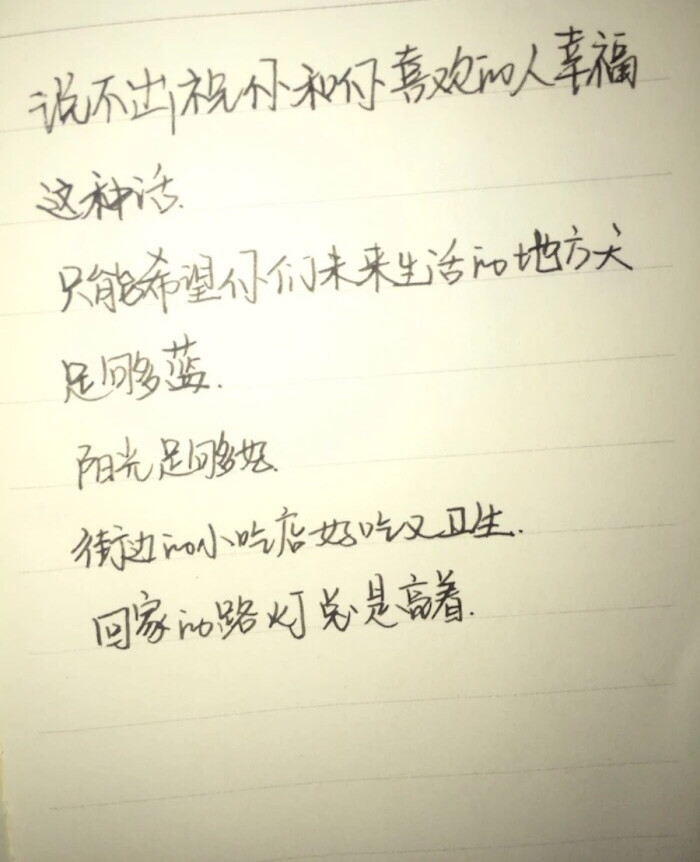 说不出祝你和你喜欢的人幸福
这种话.
只能希望你们未来生活的地方天
足够蓝.
阳光足够好.
街边的小吃店好吃又卫生.
回家的路灯总是高着.